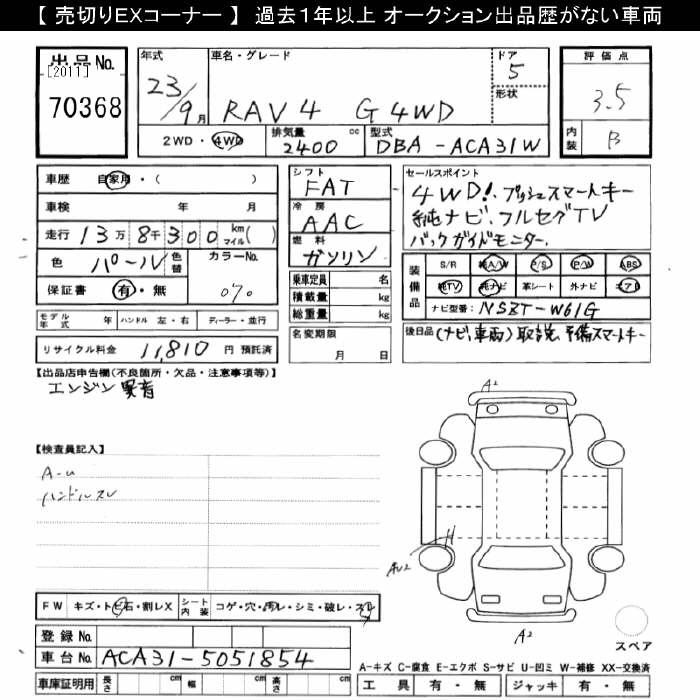 【 売切りEXコーナー 】 過去1年以上 オークション出品歴がない車両
出品No.
[2011]
70368
年式
23/9月
車名・グレード
RAV4 G 4WD
ドア
5
形状
評価点
3.5
内装
B
2WD・4WD
排気量
2400 cc
型式
DBA-ACA31W
車歴
自家用・( )
車検 年 月
走行 13万8千300 km マイル( )
色 パール 色替
カラーNo.
070
保証書 有・無
モデル年式
ハンドル 左・右
ディーラー・並行
リサイクル料金 11,810 円 預託済
シフト
FAT
冷房
AAC
燃料
ガソリン
乗車定員 名
積載量 kg
総重量 kg
名変期限
月 日
セールスポイント
4WD!、プッシュスマートキー
純ナビ、フルセグTV
バックガイドモニター、
装備品
S/R 純A/W P/S P/W ABS
純TV 純ナビ 革シート 外ナビ エアB
ナビ型番: NSZT-W61G
後日品 (ナビ、車両)取説、予備スマートキー
【出品店申告欄(不良箇所・欠品・注意事項等)】
エンジン異音
【検査員記入】
A-U
ハンドルスレ
A2
H
AU2
A2
スペア
FW キズ・トビ石・割レX
シート内装 コゲ・穴・汚レ・シミ・破レ・スレ
登録No.
車台No. ACA31-5051854
車庫証明用 長さ cm 幅 cm 高さ cm
A-キズ C-腐食 E-エクボ S-サビ U-凹ミ W-補修 XX-交換済
工具 有・無 ジャッキ 有・無